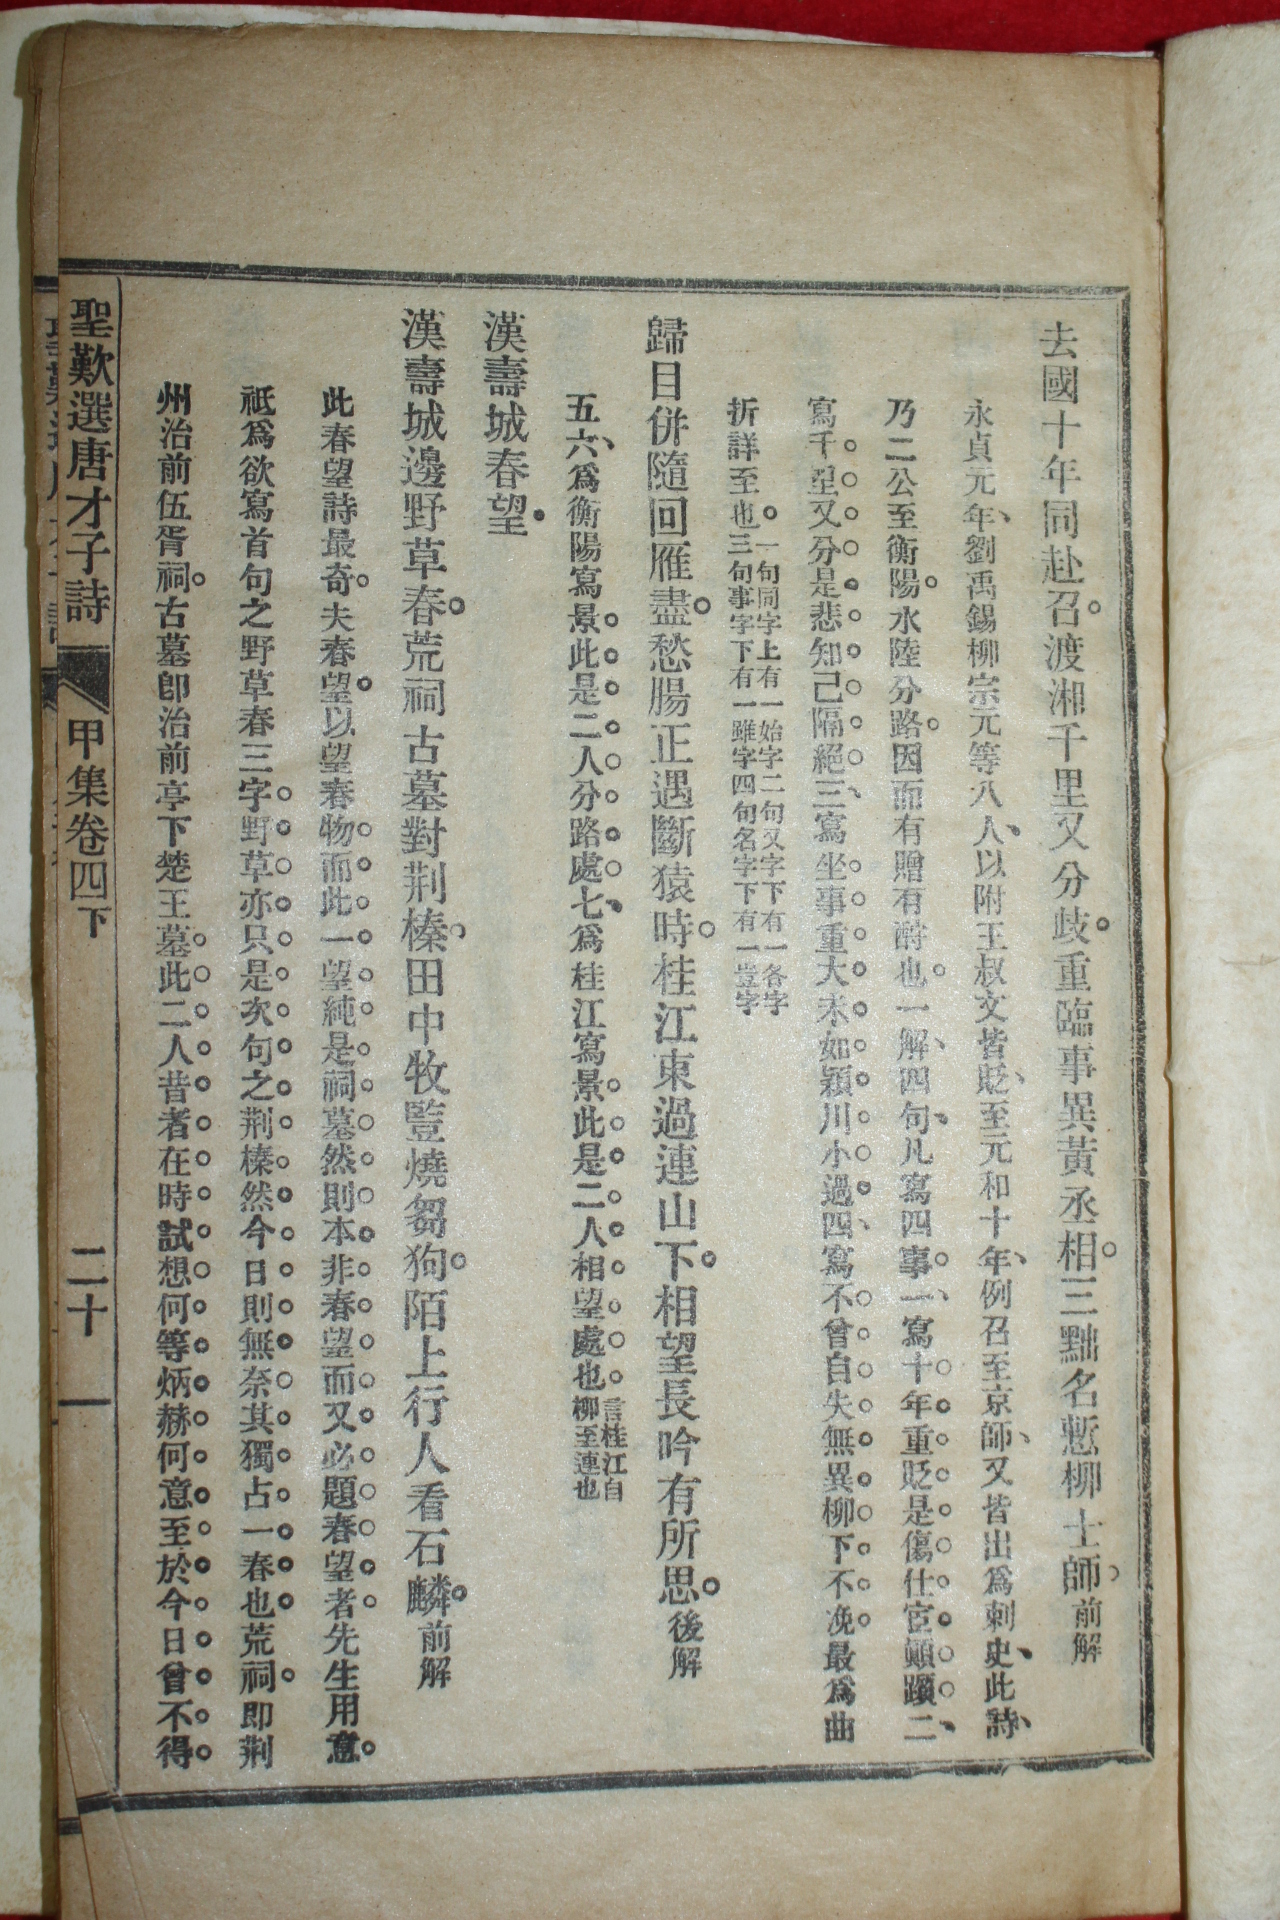 去國十年同赴召渡湘千里又分歧重臨事異黃丞相三黜名慙柳士師前解
永貞元年劉禹錫柳宗元等八人以附王叔文皆貶至元和十年例召至京師又皆出爲刺史此詩
乃二公至衡陽水陸分路因而有贈有酧也一解四句凡寫四事一寫十年重貶是傷仕宦顚躓二
寫千里又分是悲知己隔絕三寫坐事重大未如潁川小過四寫不曾自失無異柳下不浼最爲曲
折詳至也一句同字上有一始字二句又字下有一各字
三句事字下有一雖字四句名字下有一豈字
歸目併隨回雁盡愁腸正遇斷猿時桂江東過連山下相望長吟有所思後解
五六爲衡陽寫景此是二人分路處七爲桂江寫景此是二人相望處也言桂江自
柳至連也
漢壽城春望
漢壽城邊野草春荒祠古墓對荆榛田中牧豎燒芻狗陌上行人看石麟前解
此春望詩最奇夫春望以望春物而此一望純是祠墓然則本非春望而又必題春望者先生用意
祇爲欲寫首句之野草春三字野草亦只是次句之荆榛然今日則無奈其獨占一春也荒祠即荆
州治前伍胥祠古墓卽治前亭下楚王墓此二人昔者在時試想何等炳赫何意至於今日曾不得
聖歎選唐才子詩
甲集卷四下
二十